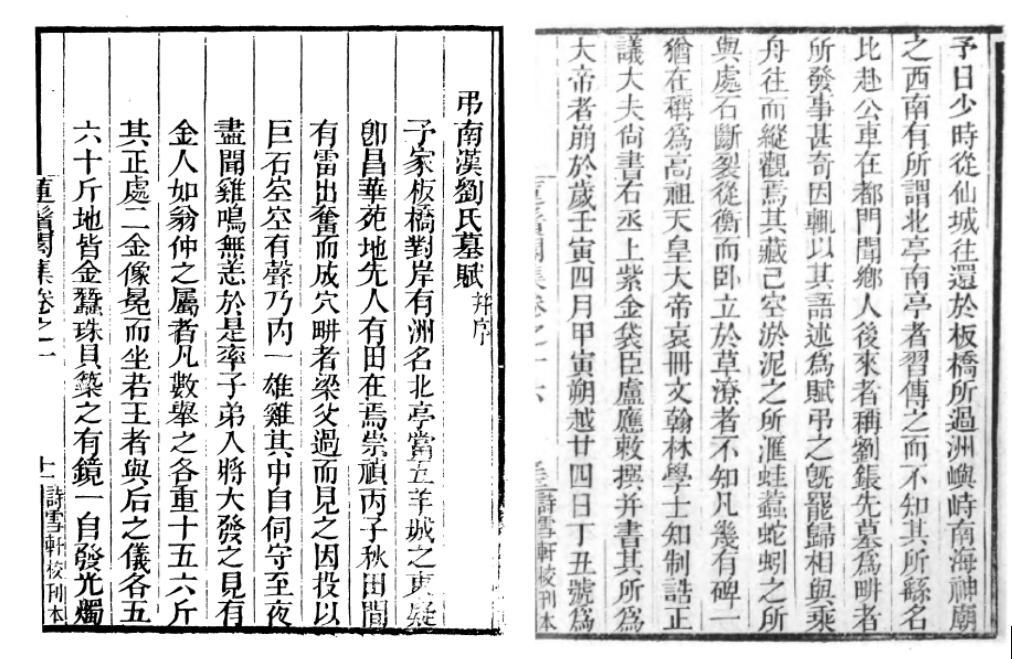 予日少時從仙城往還於板橋所過洲嶼峙南海神廟
之西南有所謂北亭南亭者習傳之而不知其所繇名
比赴公車在都門聞鄉人後來者稱劉鋹先墓爲畊者
所發事甚奇因輒以其語述爲賦弔之旣罷歸相與乘
舟往而縱觀焉其藏已空淤泥之所滙蛙蟁蛇蚓之所
與處石斷裂從衡而卧立於草潦者不知凡幾有碑一
猶在稱爲高祖天皇大帝哀冊文翰林學士知制誥正
議大夫尙書右丞上紫金袋臣盧應敕撰并書其所爲
大帝者崩於歲壬寅四月甲寅朔越廿四日丁丑號爲
閣集卷之十六 詩雪軒校刊本
弔南漢劉氏墓賦并序
予家板橋對岸有洲名北亭當五羊城之東疑
卽昌華苑地先人有田在焉崇禎丙子秋田間
有雷出奮而成穴畊者梁父過而見之因投以
巨石空空有聲乃內一雄雞其中自伺守至夜
盡聞雞鳴無恙於是率子弟入將大發之見有
金人如翁仲之屬者凡數舉之各重十五六斤
其正處二金像冕而坐若王者與后之儀各五
六十斤地皆金蠶珠貝築之有鏡一自發光燭
蓮鬚閣集卷之一 十一 詩雪軒校刊本